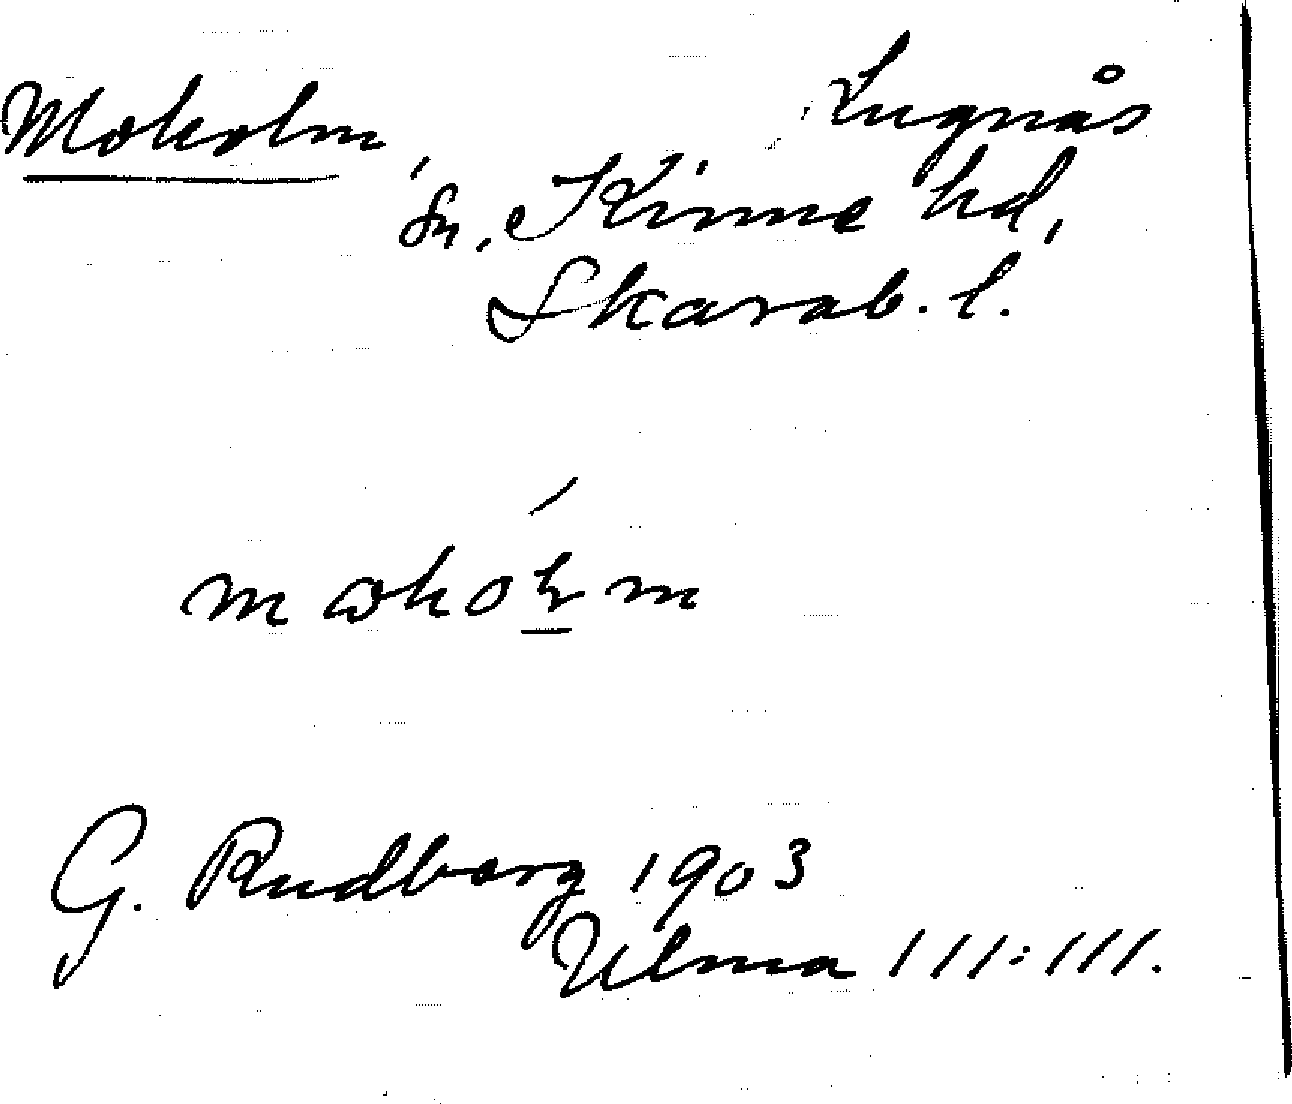 Moholm, Lugnås
sn, Kinne hd,
Skarab. l.
mωhoḻm
G. Rudberg 1903
Ulma 111:111.